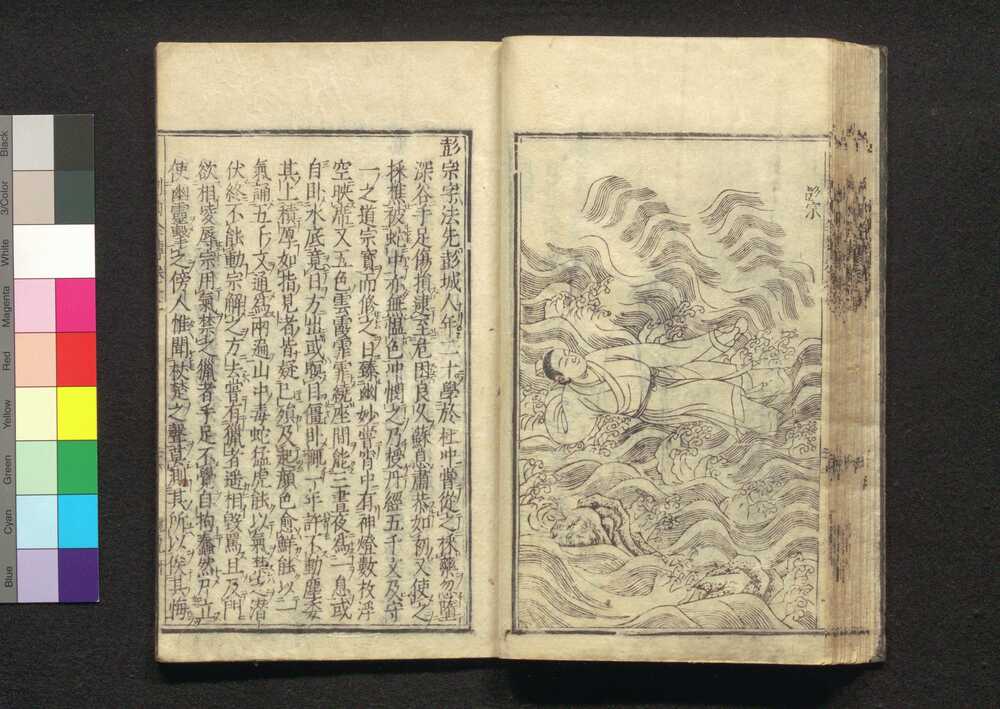 Black
3/Color
White
Magenta
Red
Yellow
Green
Cyan
Blue
彭宗
彭宗字法先彭城人年二十學於杜冲嘗從之採藥忽墮
深谷手足傷損逮至危困良久蘇息肅恭如初又使之
採樵被蛇中亦無慍色冲憫之乃授丹經五千文及守
一之道宗寶而修之日臻幽妙嘗宵中有神燈數枚浮
空映席又五色雲霞霏霏繞座間能三晝夜爲一息或
自卧水底竟日方出或瞑目僵卧輒一年許不動塵委
其上積厚如指見者皆疑已殞及起顔色愈鮮能以一
氣誦五千文通爲兩遍山中毒蛇猛虎能以氣禁之潛
伏終不能動宗解之方去嘗有獵者遥相毀罵且及門
欲相凌辱宗用氣禁之獵者手足不覺自拘蠢然乃立
使幽靈擊之傍人惟聞杖楚之聲莫測其所以俟其悔